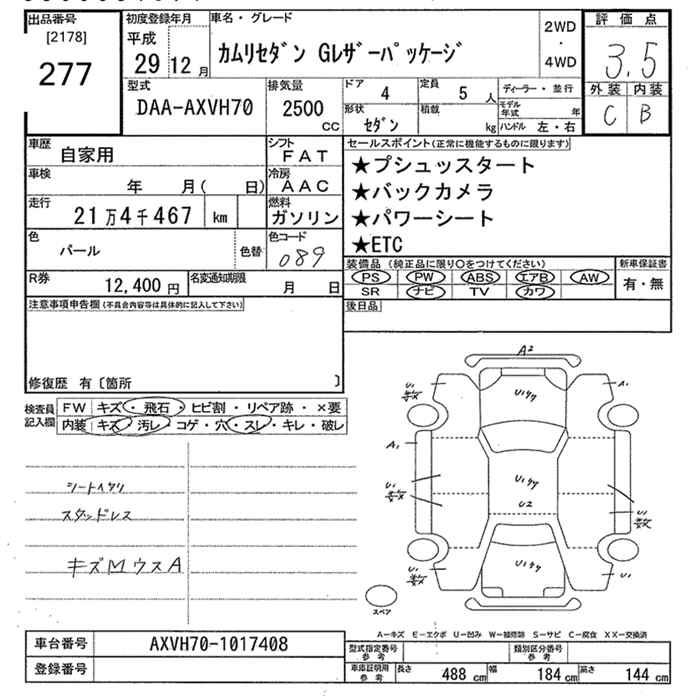 出品番号
[2178]
277
初度登録年月
平成
29 12月
車名・グレード
カムリセダン Gレザーパッケージ
2WD
・
4WD
評価点
3.5
外装 内装
C B
型式
DAA-AXVH70
排気量
2500
CC
ドア 4
定員 5 人
形状 セダン
積載 kg
ディーラー・並行
モデル年式 年
ハンドル 左・右
車歴 自家用
シフト FAT
車検 年 月( 日)
冷房 AAC
走行 21万4千467 km
燃料 ガソリン
色 パール
色替
色コード 089
R券 12,400円
名変通知期限 月 日
セールスポイント(正常に機能するものに限ります)
★プシュッスタート
★バックカメラ
★パワーシート
★ETC
装備品(純正品に限り○をつけてください)
PS PW ABS エアB AW
SR ナビ TV カワ
新車保証書
有・無
後日品
注意事項申告欄(不具合内容等は具体的に記入して下さい)
修復歴 有〔箇所 〕
検査員記入欄
FW キズ・飛石・ヒビ割・リペア跡・×要
内装 キズ・汚レ・コゲ・穴・スレ・キレ・破レ
スタッドレス
キズMウスA
A2
U1
A1
A1
U1
U2
U1
U1
U1
スペア
A―キズ E―エクボ U―凹み W―補修跡 S―サビ C―腐食 XX―交換済
車台番号 AXVH70-1017408
登録番号
型式指定番号 参考
類別区分番号 参考
車庫証明用 参考
長さ 488 cm 幅 184 cm 高さ 144 cm